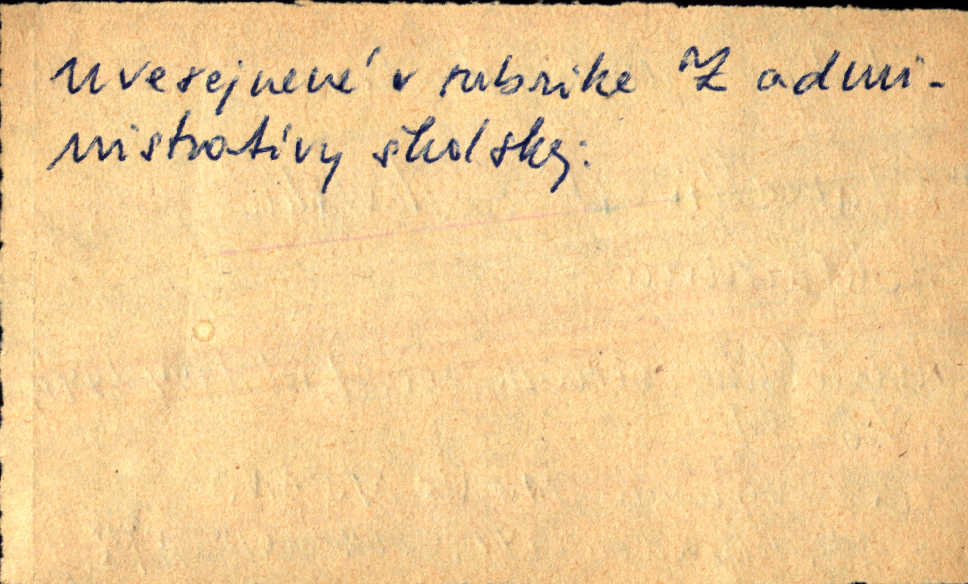 uverejnené v rubrike Z admi-
nistratívy školskej: